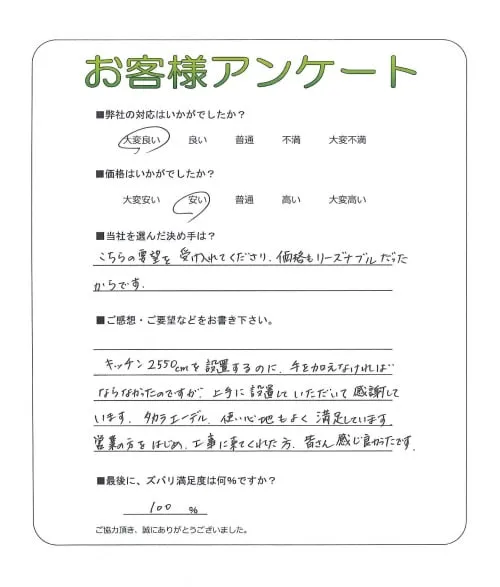 お客様アンケート
■弊社の対応はいかがでしたか？
大変良い 良い 普通 不満 大変不満
■価格はいかがでしたか？
大変安い 安い 普通 高い 大変高い
■当社を選んだ決め手は？
こちらの要望を受け入れてくださり、価格もリーズナブルだった
からです．
■ご感想・ご要望などをお書き下さい。
キッチン2550cmを設置するのに、手を加えなければ
ならなかったのですが、上手に設置していただいて感謝して
います．タカラエーデル、使い心地もよく満足しています．
営業の方をはじめ、工事に来てくれた方、皆さん感じ良かったです．
■最後に、ズバリ満足度は何％ですか？
100 %
ご協力頂き、誠にありがとうございました。